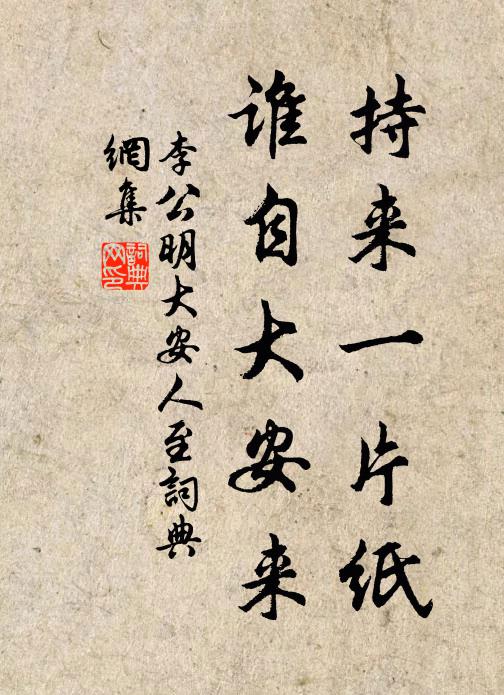 持来一片纸
谁自大安来
李公明大安人至詞典
網集
詞典
网印